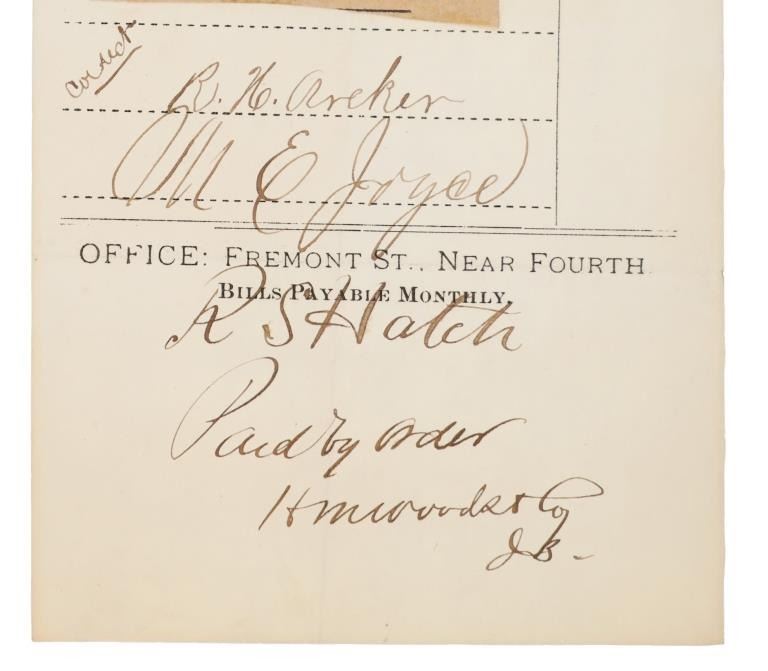 Correct
R. H. Archer
M E Joyce
OFFICE: FREMONT ST., NEAR FOURTH
BILLS PAYABLE MONTHLY.
R S Hatch
Paid by order
H M Woods & Co
J B -